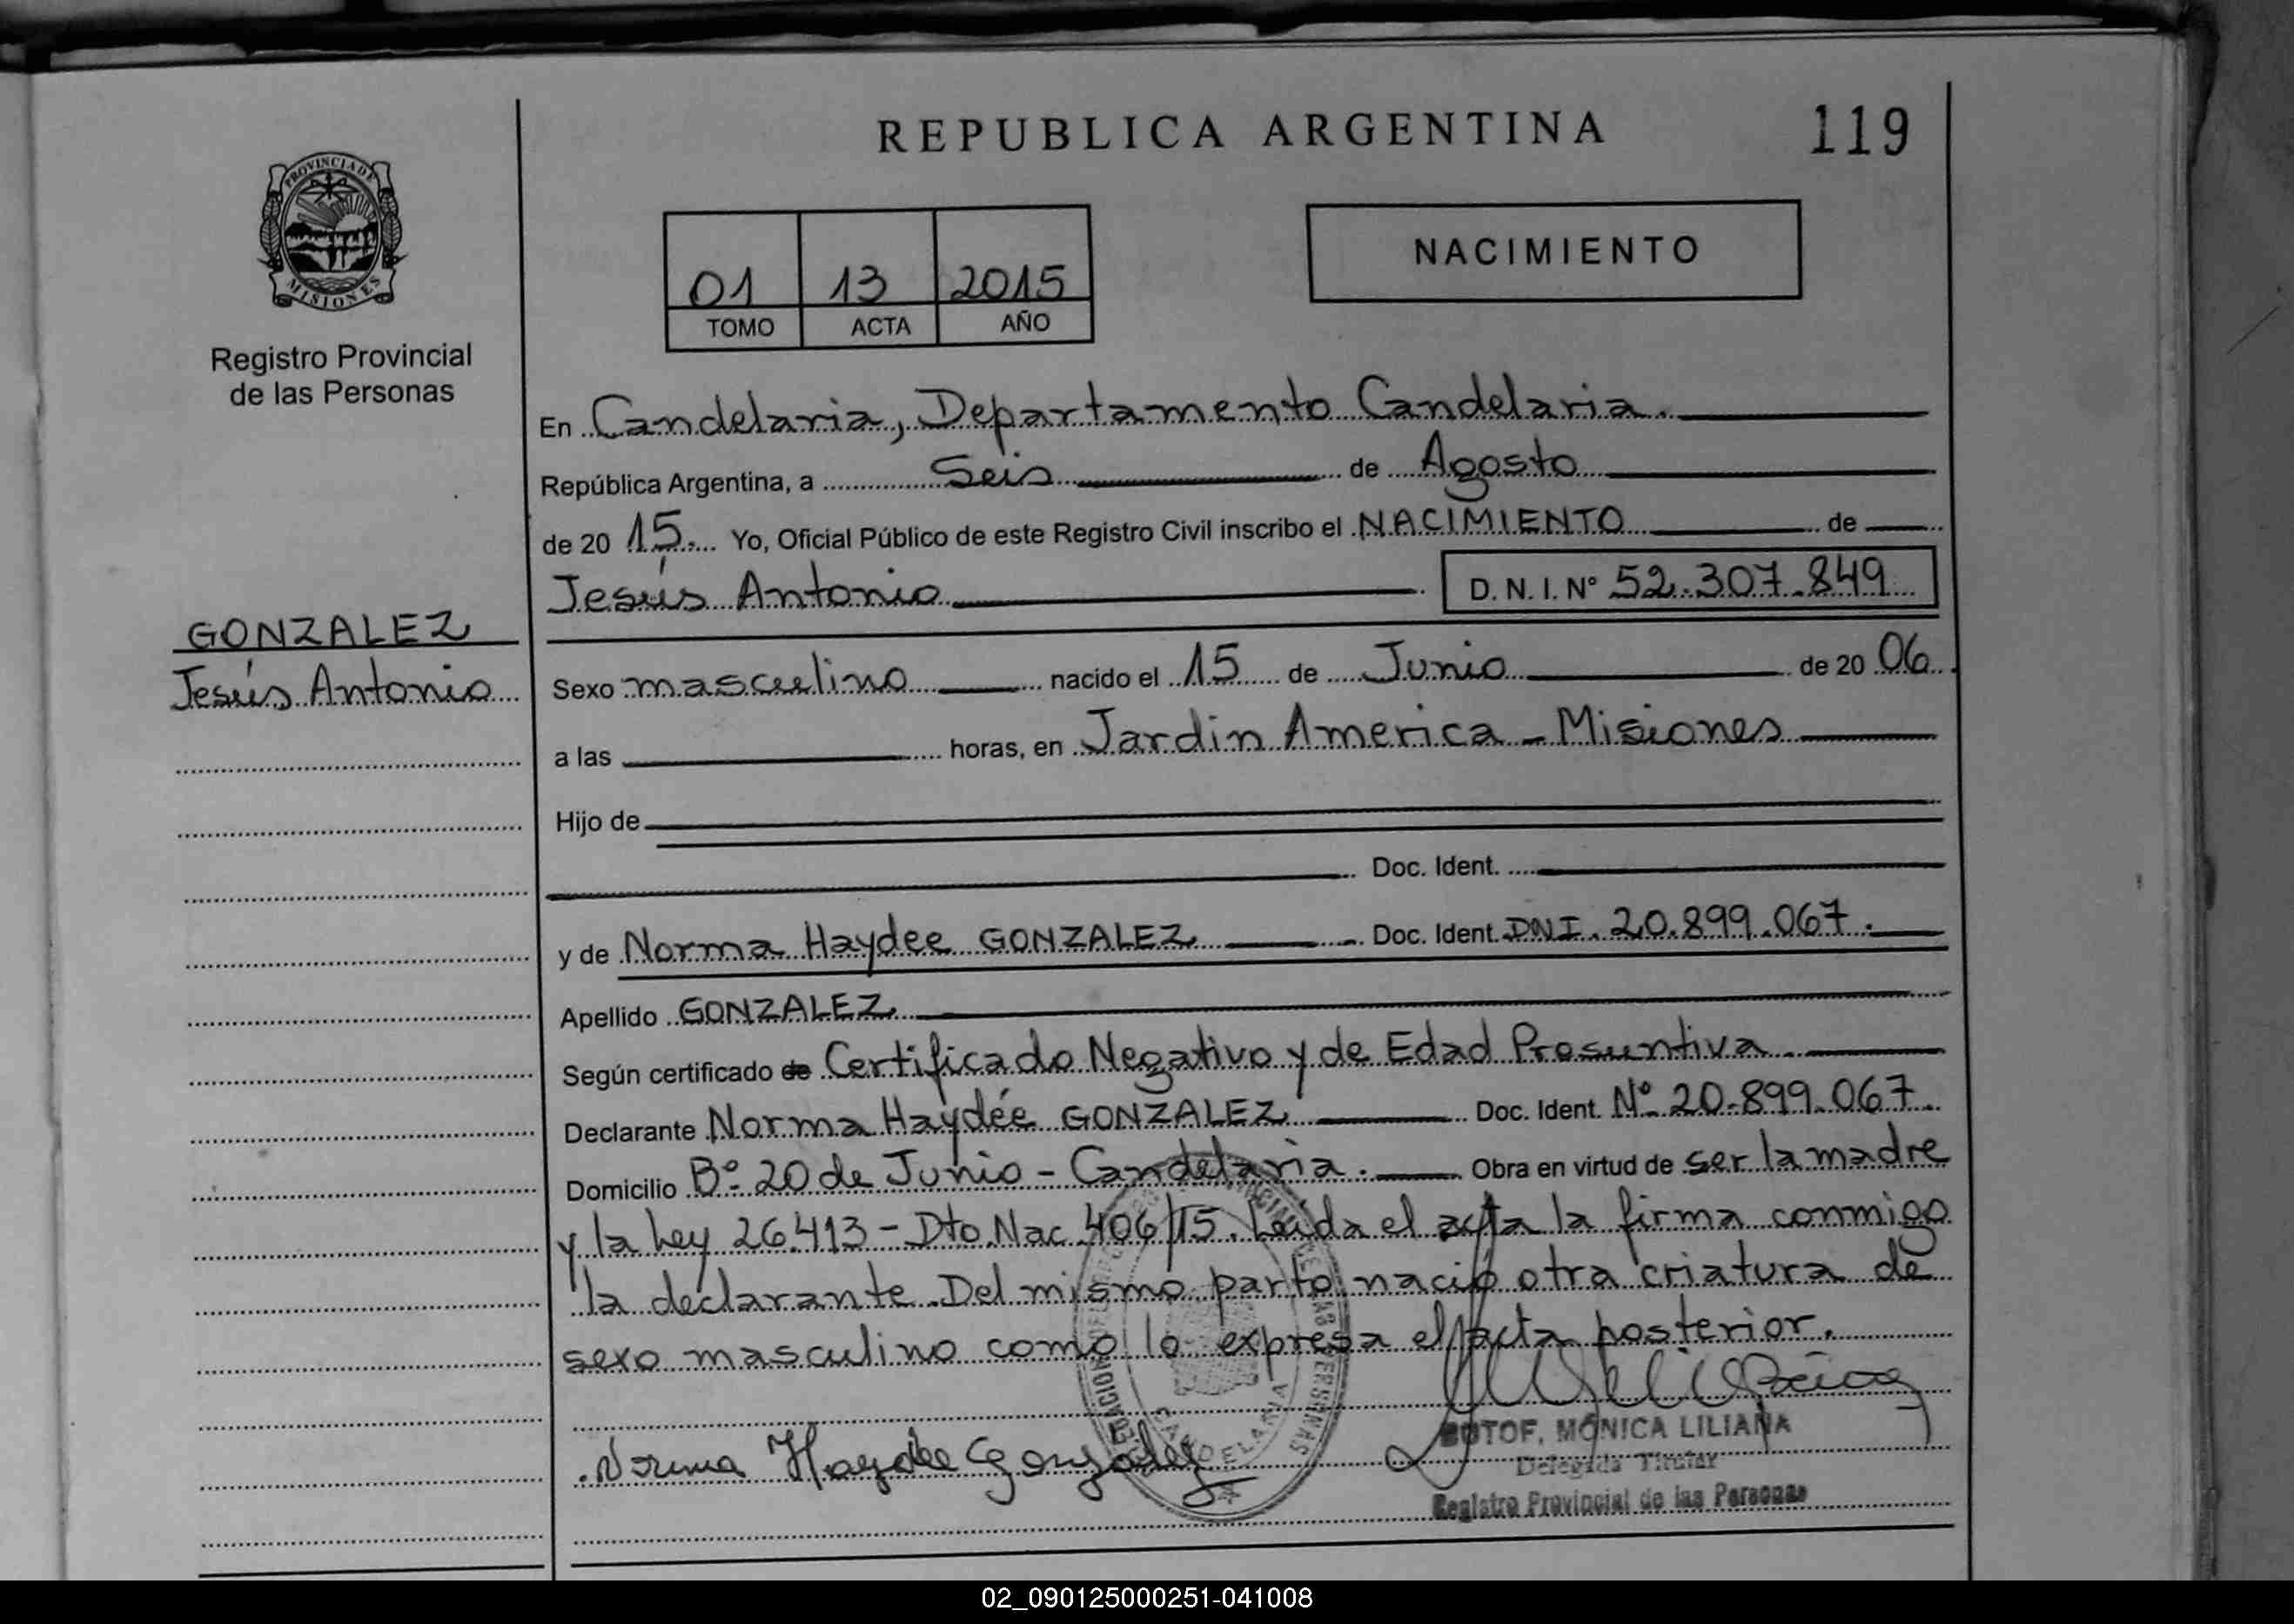 REPUBLICA ARGENTINA
119
PROVINCIA DE
MISIONES
Registro Provincial
de las Personas
01 13 2015
TOMO ACTA AÑO
NACIMIENTO
En Candelaria, Departamento Candelaria.
República Argentina, a Seis de Agosto
de 20 15. Yo, Oficial Público de este Registro Civil inscribo el NACIMIENTO de
Jesús Antonio D. N. I. N° 52.307.849
GONZALEZ
Jesús Antonio
Sexo masculino nacido el 15 de Junio de 20 06.
a las horas, en Jardin America - Misiones
Hijo de
Doc. Ident.
y de Norma Haydee GONZALEZ Doc. Ident. DNI. 20.899.067.
Apellido GONZALEZ
Según certificado de Certificado Negativo y de Edad Presuntiva.
Declarante Norma Haydée GONZALEZ Doc. Ident. N° 20.899.067.
Domicilio B° 20 de Junio - Candelaria. Obra en virtud de ser la madre
y la Ley 26.413 - Dto. Nac. 406/15. Leída el acta la firma conmigo
la declarante. Del mismo parto nació otra criatura de
sexo masculino como lo expresa el acta posterior.
Norma Haydee Gonzalez
CANDELARIA
BOTOF, MÓNICA LILIANA
Delegada Titular
Registro Provincial de las Personas
02_090125000251-041008